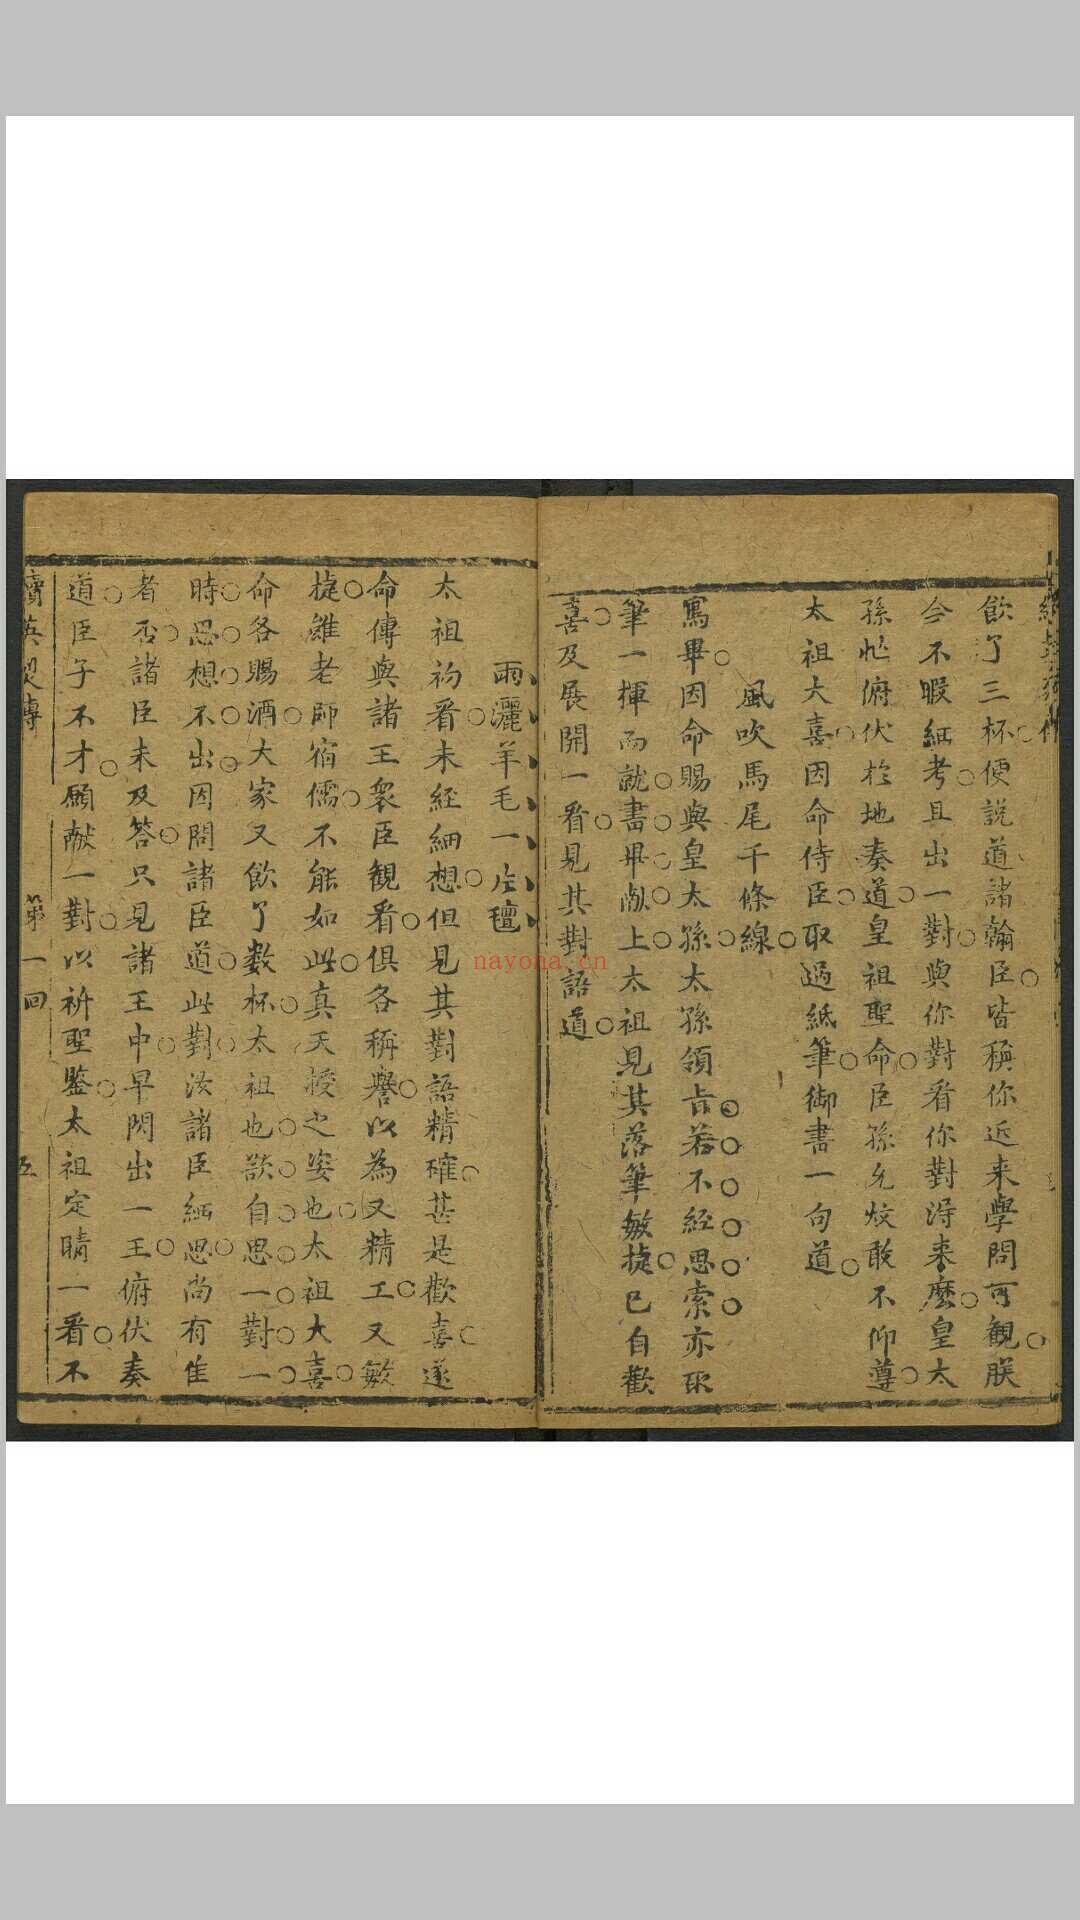 飲了三杯便說道諸翰臣皆稱你近来學問可觀朕
今不暇細考且出一對與你對看你對淂来麽皇太
孫忙俯伏於地奏道皇祖聖命臣孫允炆敢不仰遵
太祖大喜因命侍臣取過紙筆御書一句道
風吹馬尾千條線
寫畢因命賜與皇太孫太孫領旨若不經思索亦取
筆一揮而就書畢献上太祖見其落筆敏捷已自歡
喜及展開一看見其對語道
雨灑羊毛一片氊
太祖初看未經細想但見其對語精確甚是歡喜遂
命傳與諸王衆臣觀看俱各稱譽以為又精工又敏
捷雖老師宿儒不能如此真天授之姿也太祖大喜
命各賜酒大家又飲了数杯太祖也欲自思一對一
時思想不出因問諸臣道此對汝諸臣細思尚有佳
者否諸臣未及答只見諸王中早閃出一王俯伏奏
道臣子不才願献一對以祈聖鑒太祖定睛一看不
續英烈傳
第一回
五
nayona.cn